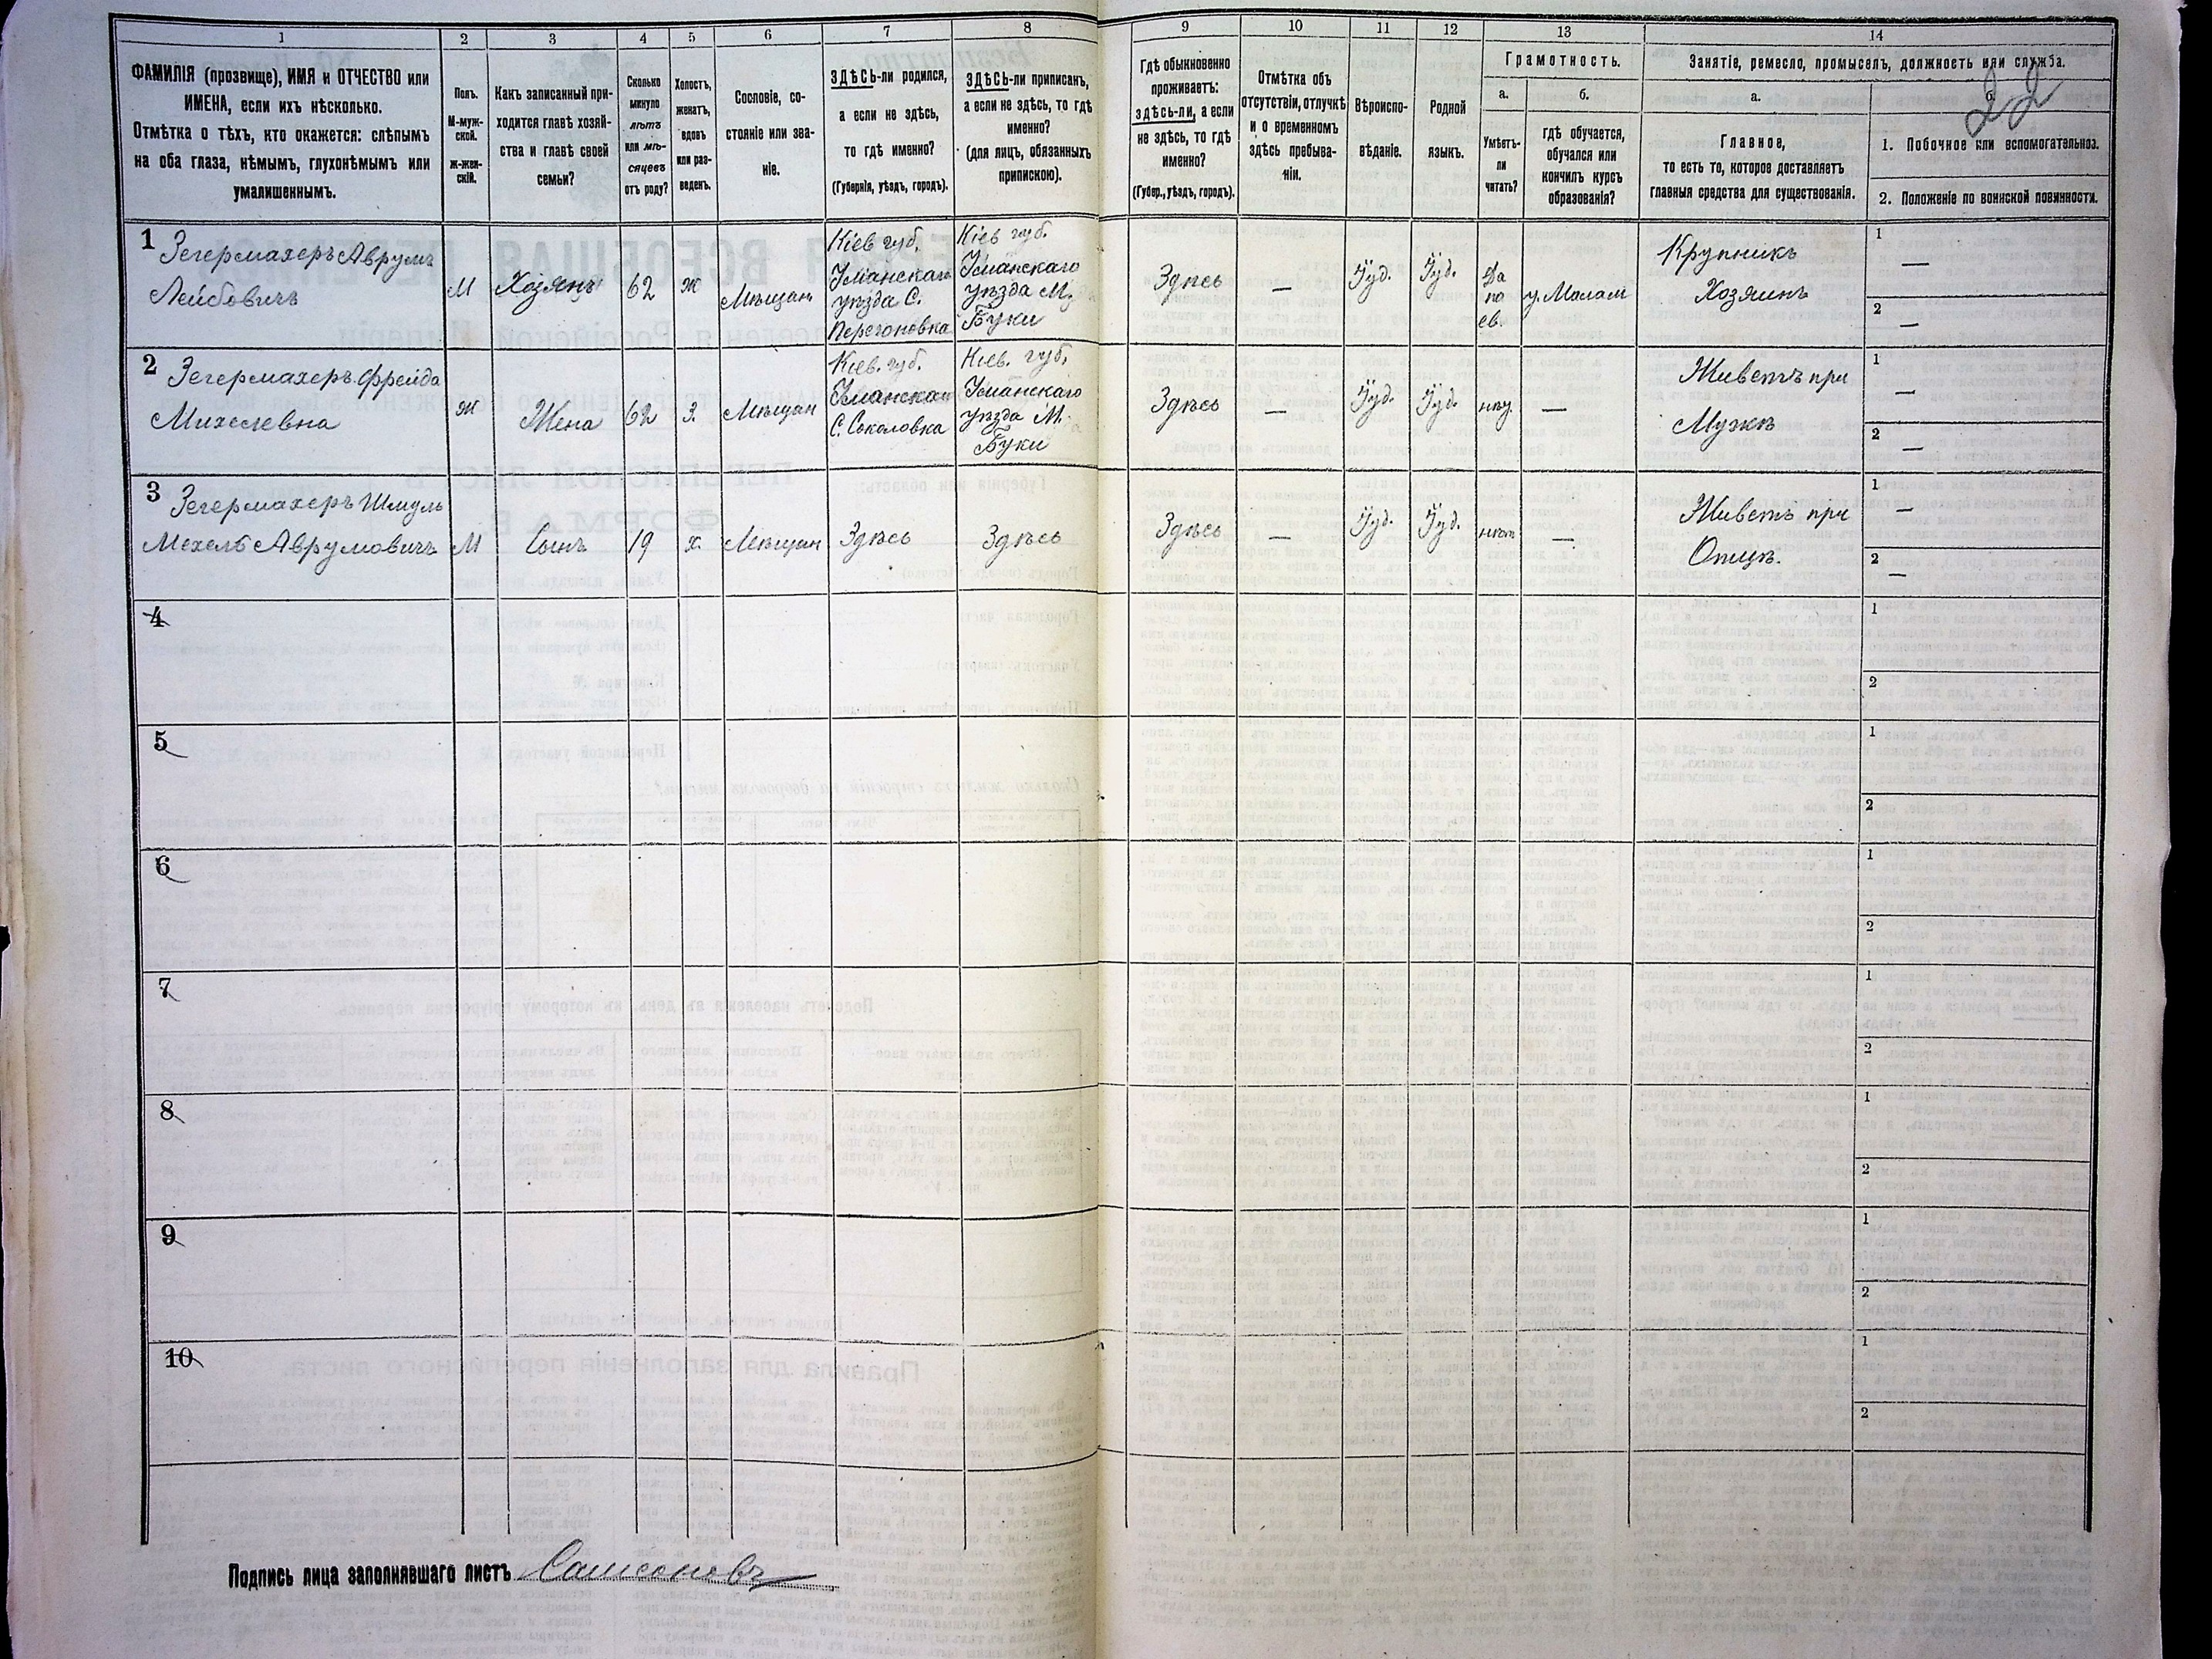 1
2
3
4
5
6
7
8
9
10
11
12
13
14
ФАМИЛІЯ (прозвище), ИМЯ и ОТЧЕСТВО или
ИМЕНА, если ихъ нѣсколько.
Отмѣтка о тѣхъ, кто окажется: слѣпымъ
на оба глаза, нѣмымъ, глухонѣмымъ или
умалишеннымъ.
Полъ.
М-муж-
ской.
ж-жен-
скій.
Какъ записанный при-
ходится главѣ хозяй-
ства и главѣ своей
семьи?
Сколько
минуло
лѣтъ
или мѣ-
сяцевъ
отъ роду?
Холостъ,
женатъ,
вдовъ
или раз-
веденъ.
Сословіе, со-
стояніе или зва-
ніе.
ЗДѢСЬ-ли родился,
а если не здѣсь,
то гдѣ именно?
(Губернія, уѣздъ, городъ).
ЗДѢСЬ-ли приписанъ,
а если не здѣсь, то гдѣ
именно?
(для лицъ, обязанныхъ
припискою).
Гдѣ обыкновенно
проживаетъ:
здѣсь-ли, а если
не здѣсь, то гдѣ
именно?
(Губер., уѣздъ, городъ).
Отмѣтка объ
отсутствіи, отлучкѣ
и о временномъ
здѣсь пребыва-
ніи.
Вѣроиспо-
вѣданіе.
Родной
языкъ.
Грамотность.
а.
Умѣетъ-
ли
читать?
б.
гдѣ обучается,
обучался или
кончилъ курсъ
образованія?
Занятіе, ремесло, промыселъ, должность или служба.
а.
Главное,
то есть то, которое доставляетъ
главныя средства для существованія.
б.
22
1. Побочное или вспомогательное.
2. Положеніе по воинской повинности.
1 Зегермахеръ Аврумъ
Лейбовичъ
М
Хозяинъ
62
Ж
Мѣщан
Кіев губ.
Уманскаго
уѣзда С.
Перегоновка
Кіев губ.
Уманскаго
уѣзда М.
Буки
Здѣсь
—
Іуд.
Іуд.
Да
по
ев.
у Малам
Крупникъ
Хозяинъ
1
—
2
—
2 Зегермахеръ Фрейда
Михелевна
Ж
Жена
62
З.
Мѣщан
Кіев. губ.
Уманскаго
С. Соколовка
Кіев. губ.
Уманскаго
уѣзда М.
Буки
Здѣсь
—
Іуд.
Іуд.
—
Живетъ при
Мужѣ
1
—
2
—
3 Зегермахеръ Шмуль
Мехель Аврумовичъ
М
Сынъ
19
х.
Мѣщан
Здѣсь
Здѣсь
Здѣсь
—
Іуд.
Іуд.
нѣт
—
Живетъ при
Отцѣ.
1
—
2
—
4
1
2
5
1
2
6
1
2
7
1
2
8
1
2
9
1
2
10
1
2
Подпись лица заполнявшаго листъ Самсоновъ